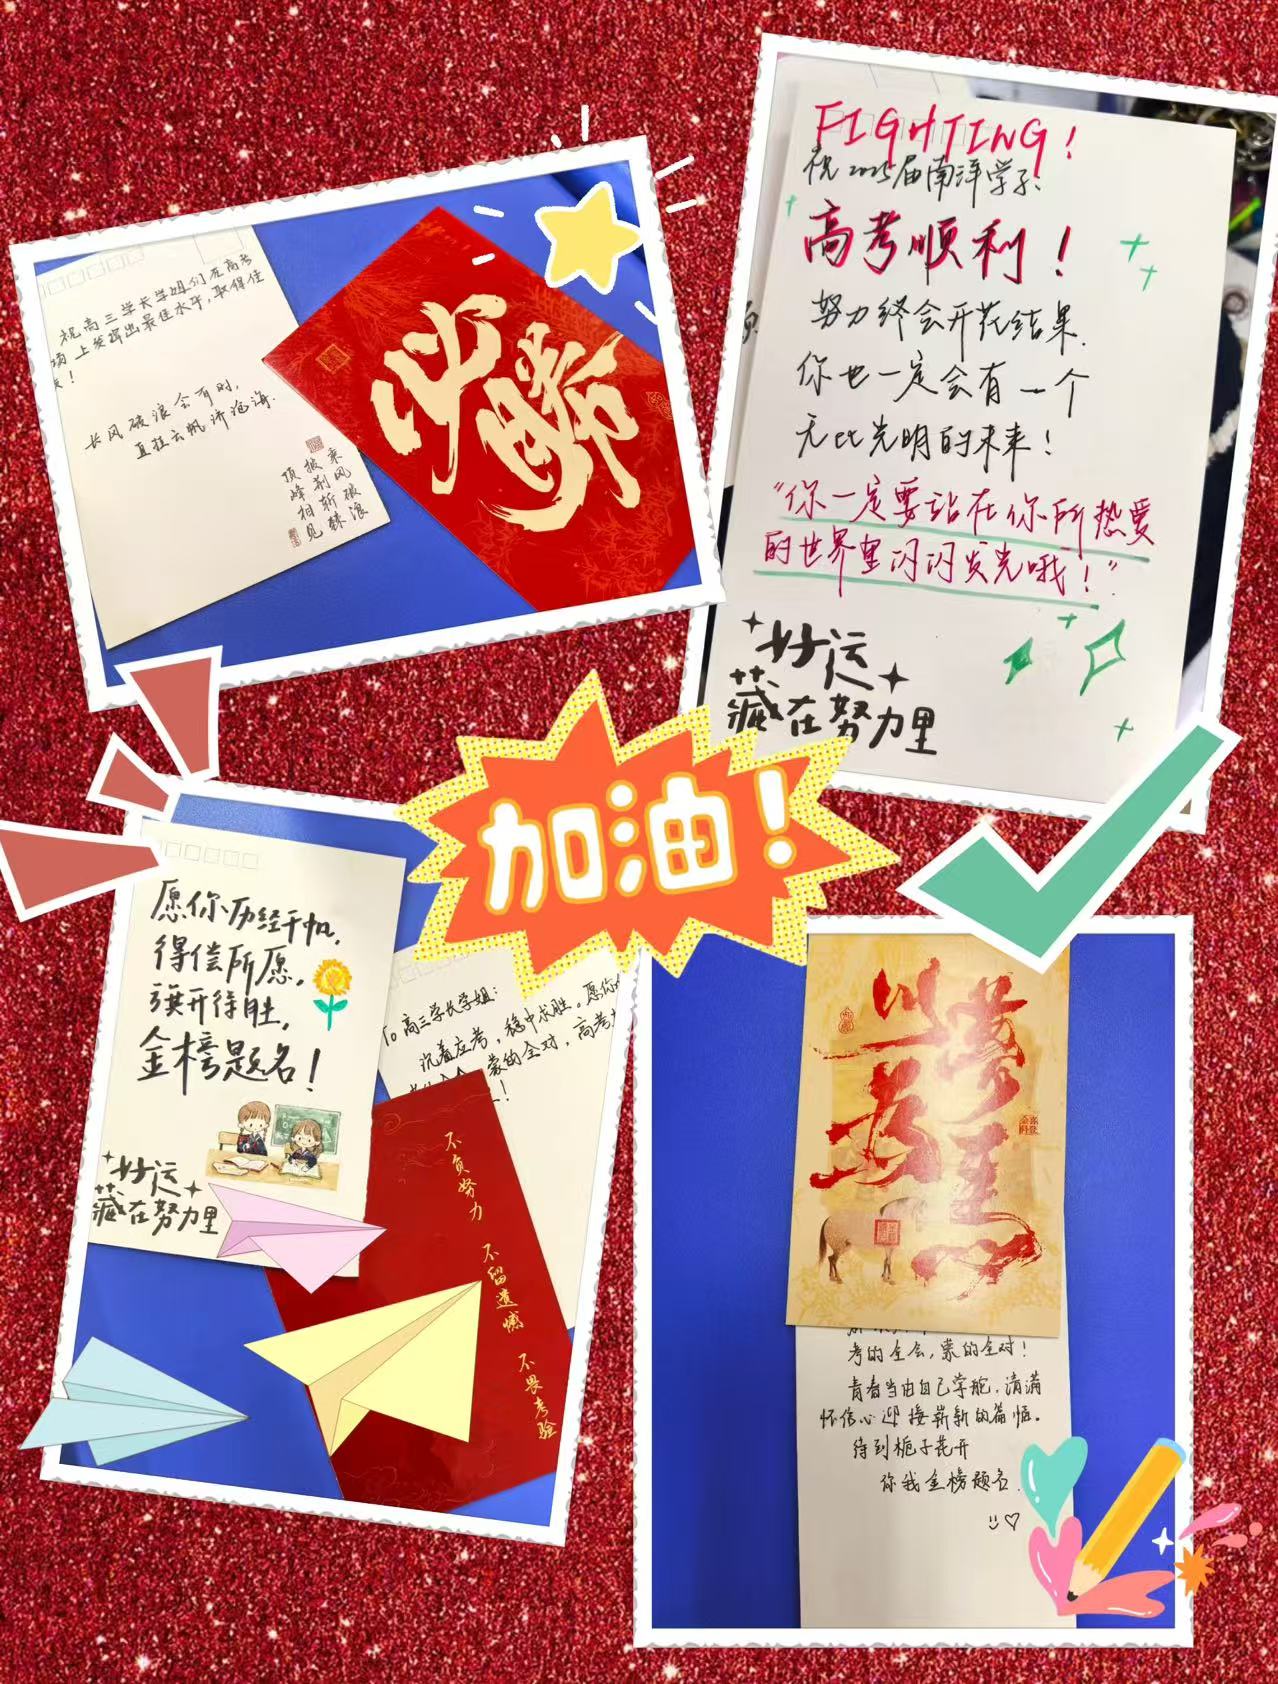 祝高三学长学姐们在高考
场上发挥出最佳水平，取得佳
！
长风破浪会有时，
直挂云帆济沧海.
乘风破浪
披荆斩棘
顶峰相见
必胜
FIGHTING！
祝2025届南洋学子：
高考顺利！
努力终会开花结果.
你也一定会有一个
无比光明的未来！
“你一定要站在你所热爱
的世界里闪闪发光哦！”
好运
藏在努力里
加油！
愿你历经千帆，
得偿所愿，
旗开得胜，
金榜题名！
好运
藏在努力里
To 高三学长学姐：
沉着应考，稳中求胜。愿你
蒙的全对，高考
！
不负努力
不留遗憾
不畏考验
以梦为马
考的全会，蒙的全对！
青春当由自己掌舵，请满
怀信心迎接崭新的篇幅。
待到栀子花开
你我金榜题名.